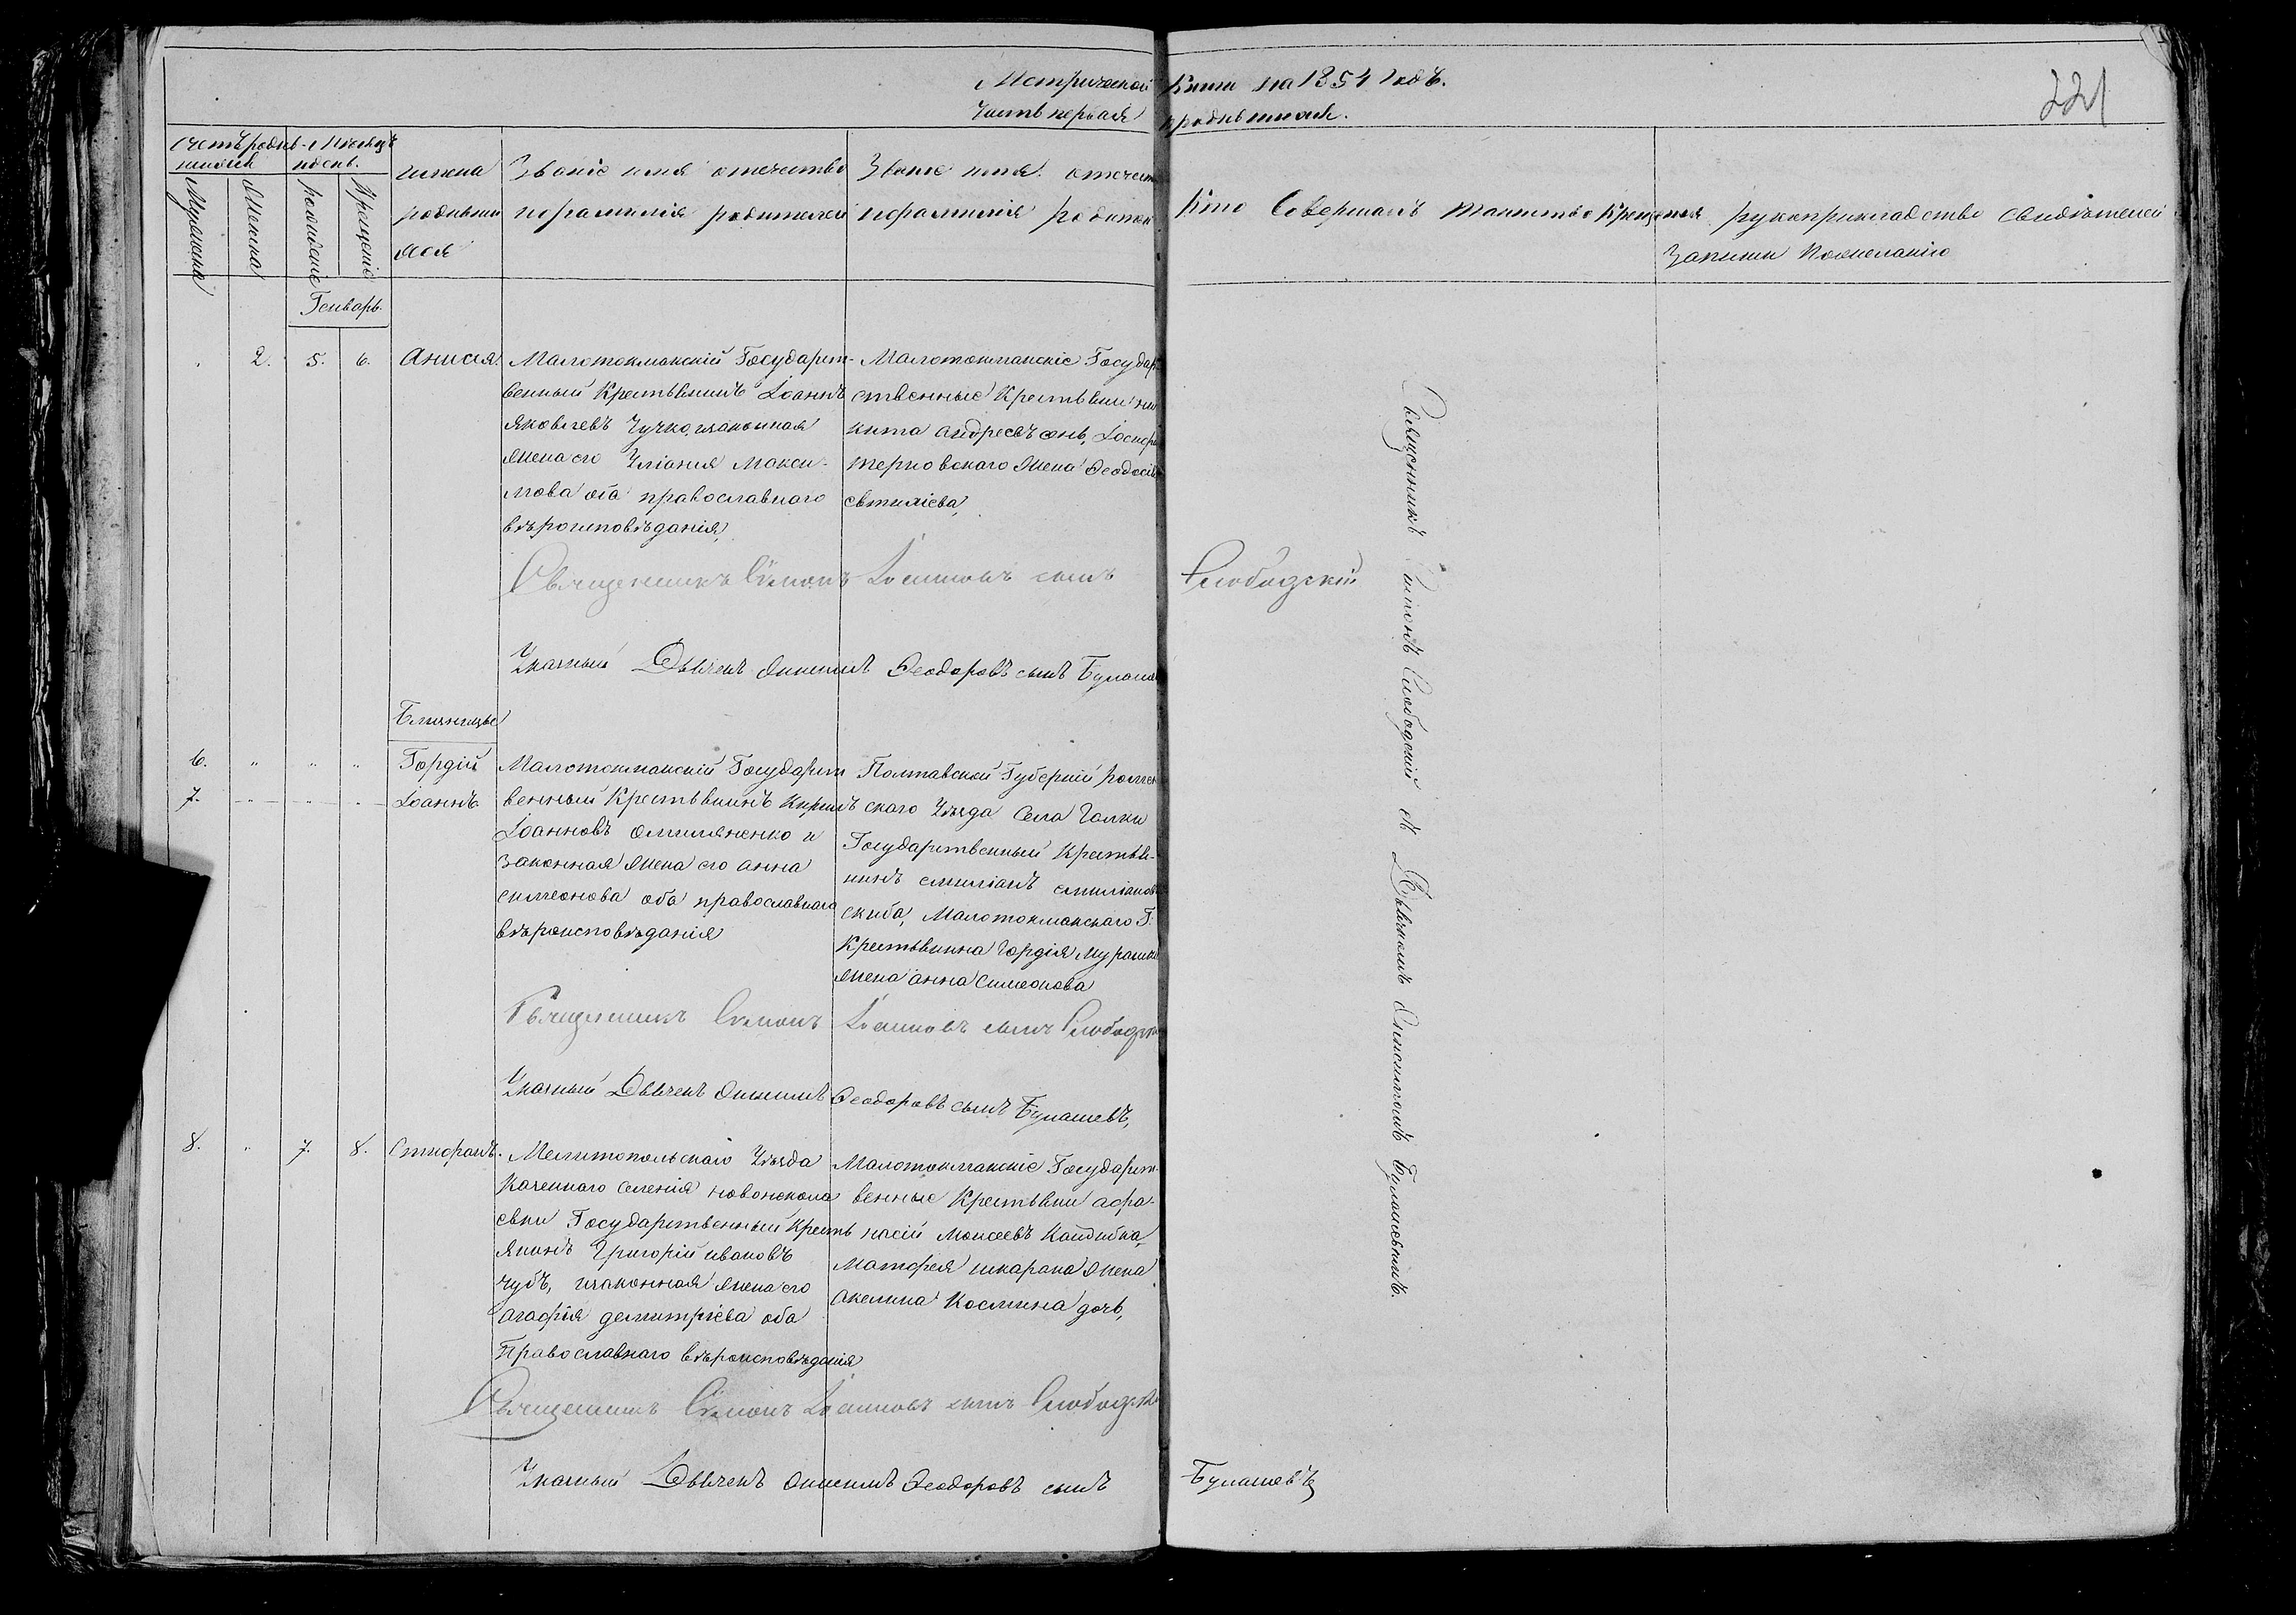 Метрической Книги на 1854 годъ.
Часть первая о родившихся.
221
Счетъ родив-
шихся
Мѣсяцъ
и день.
Мужеска
Женска
рожденіе
Крещеніе
имена
родивши
хся
Званіе имя отечество
и фамилія родителей
Званіе имя отечест
и фамилія родител
Кто Совершалъ таинство Крещенія
рукоприкладство свидѣтелей
Записи по желанію
Генварь
2. 5. 6. Анисія.
Малотокмакскій Государст-
венный Крестьянинъ Іоаннъ
Яковлевъ Чучко, изаконная
жена его Уліанія Макси-
мова оба православнаго
вѣроисповѣданія,
Малотокмакскіе Государ
ственные Крестьяни ни
кита андреевъ сонь,
терновскаго жена Феодосія
евтихіева,
Священникъ Симонъ Іоанновъ сынъ Слободскій
Указный Дьячекъ Онисимъ Феодоровъ сынъ Булаше
Близнецы
6. Гордій
7. Іоаннъ
Малотокмакскій Государст
венный Крестьянинъ Кирилъ
Іоанновъ Омильяненко и
законная жена его анна
симеонова оба православнаго
вѣроисповѣданія
Полтавской Губерніи ромен
скаго Уѣзда Села Галки
Государственный Крестья-
нинъ емиліанъ емиліанов
скиба, Малотокмакскаго Г.
Крестьянина Гордія Мурашк
жена анна симеонова
Священникъ Симонъ Іоанновъ сынъ Слободск
Указный Дьячекъ Онисимъ Феодоровъ сынъ Булашевъ,
8. 7. 8. Стефанъ.
Мелитопольскаго Уѣзда
Казеннаго селенія новониколa
евки Государственный Кресть
янинъ Григорій ивановъ
чубъ, изаконная жена его
агафія демитріева оба
Православнаго вѣроисповѣданія
Малотокмакскіе Государст-
венные Крестьяни афа-
насій Моисеевъ Кандибка,
Матфея шкарапа жена
акелина Космина дочь,
Священникъ Симонъ Іоанновъ сынъ Слободск
Указный Дьячекъ Онисимъ Феодоровъ сынъ Булашевъ
Священникъ Симонъ Слободскій съ Дьячкомъ Онисимомъ Булашевымъ.